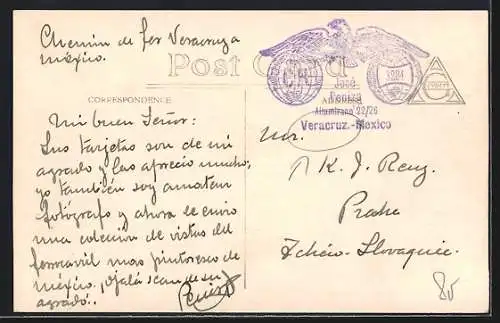 Chemin de fer Veracruz a
México.
Post Card
CORRESPONDENCE
ADDRESS
José
Altamirano 22/26
Veracruz.-Mexico
Mi buen Señor:
Sus tarjetas son de mi
agrado y las aprecio mucho,
yo también soy amateur
fotógrafo y ahora le envio
una colección de vistas del
ferrocarril mas pintoresco de
méxico, ¡Ojalá sean de su
agrado..
Mr.
K. J. Renz.
Praha
Tchéco-Slovaquie.
85